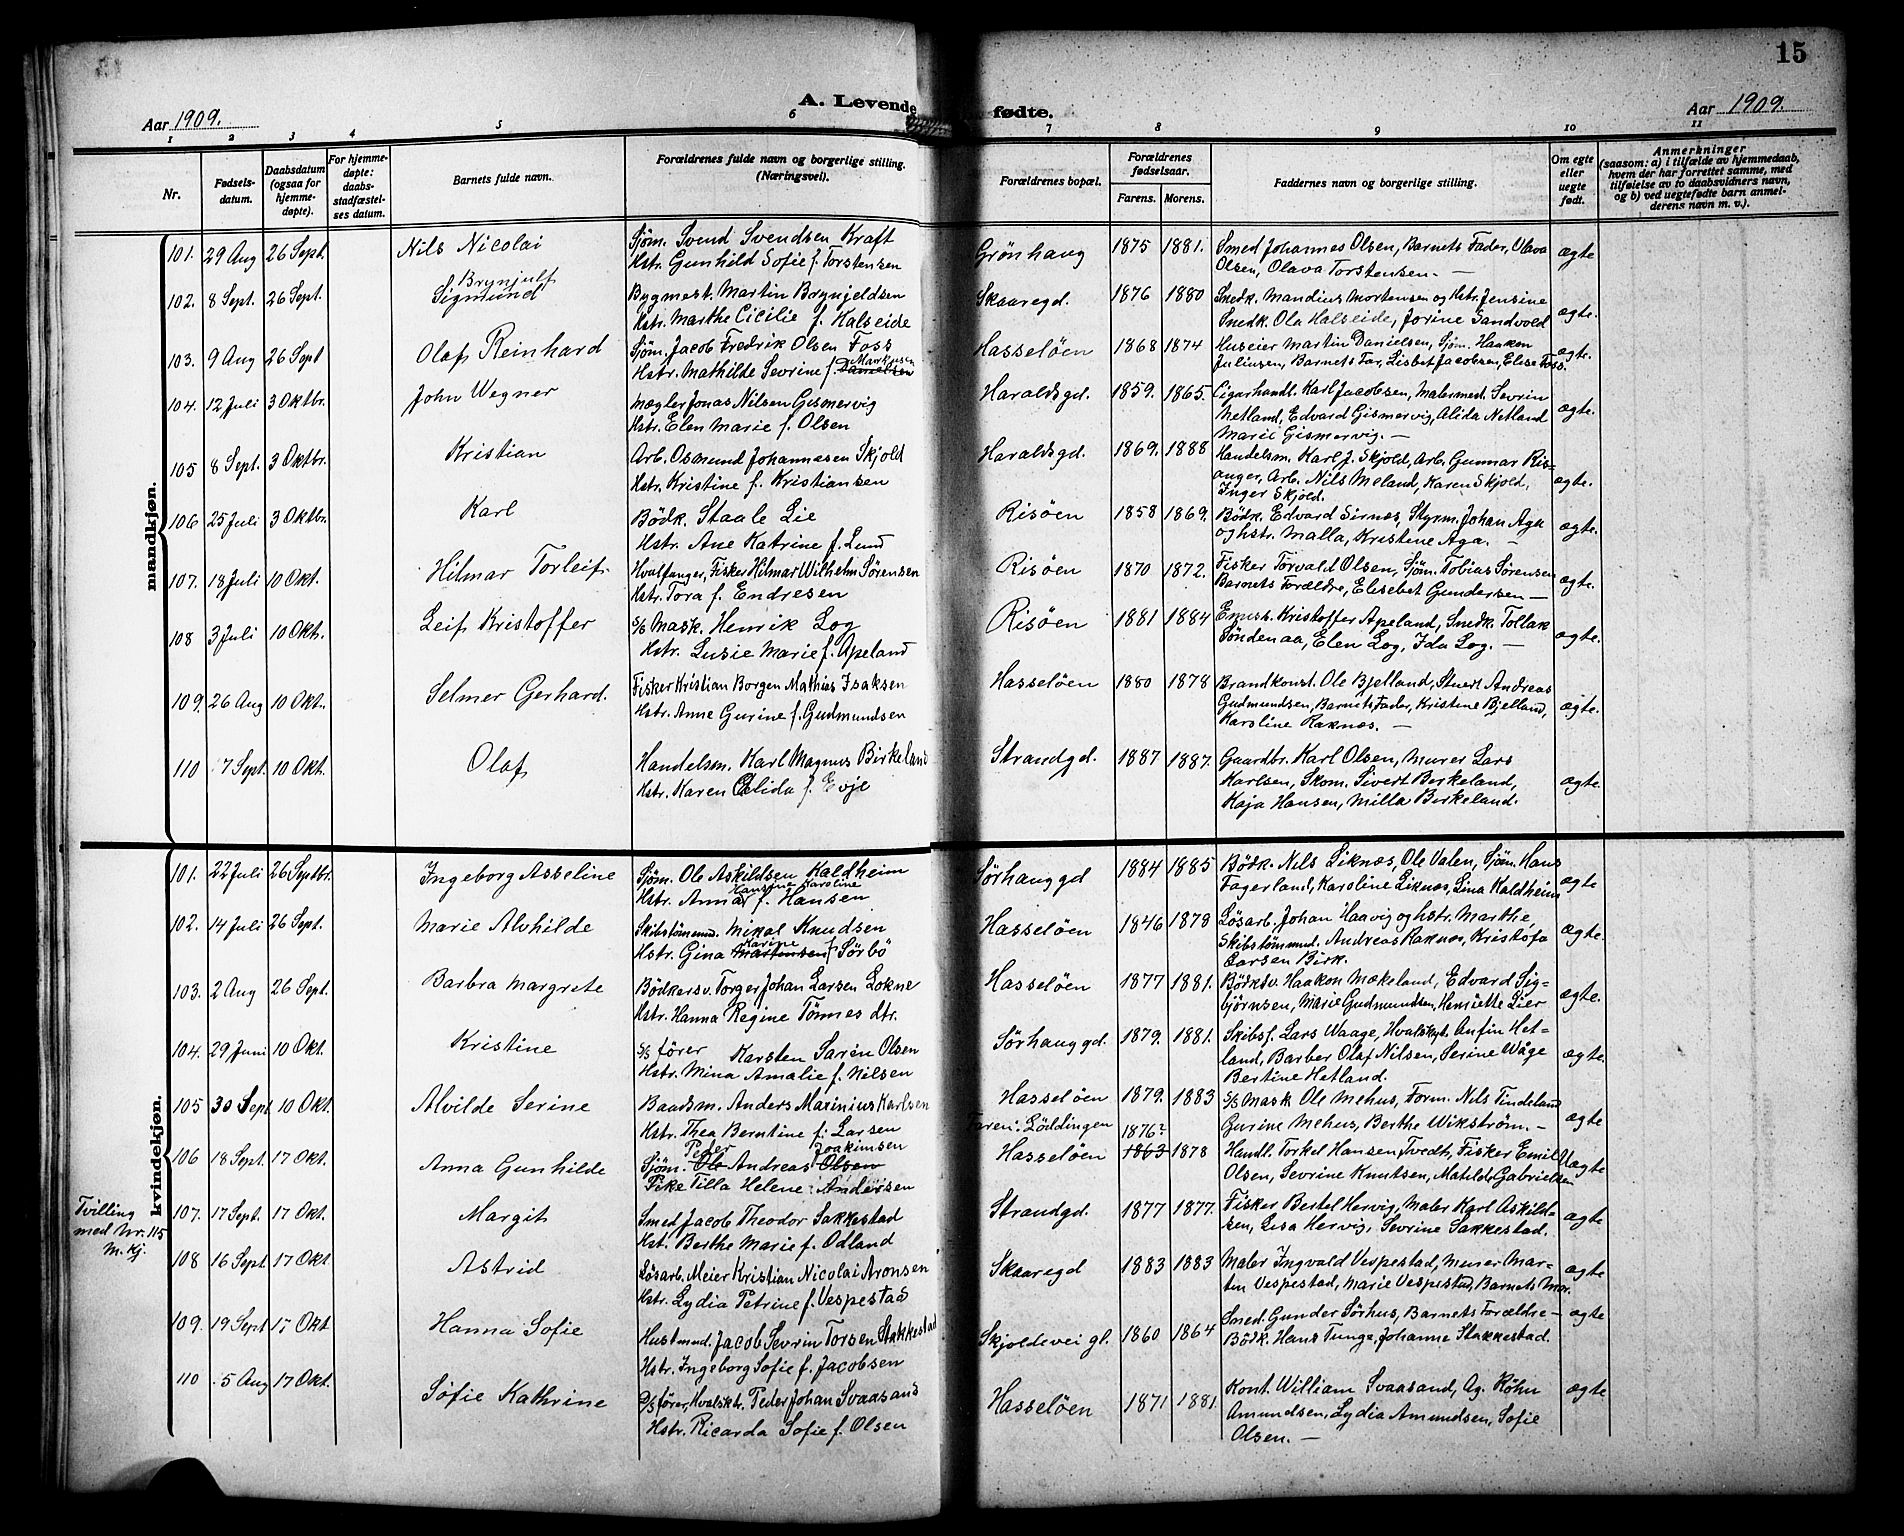 15
A. Levende fødte.
Aar 1909.
Aar 1909.
1 2 3 4 5 6 7 8 9 10 11
Nr.
Fødsels-
datum.
Daabsdatum
(ogsaa for
hjemme-
døpte).
For hjemme-
døpte:
daabs-
stadfæstel-
ses datum.
Barnets fulde navn.
Forældrenes fulde navn og borgerlige stilling.
(Næringsvei).
Forældrenes bopæl.
Forældrenes
fødselsaar.
Farens. Morens.
Faddernes navn og borgerlige stilling.
Om egte
eller
uegte
født.
Anmerkninger
(saasom: a) i tilfælde av hjemmedaab,
hvem der har forrettet samme, med
tilføielse av to daabsvidners navn,
og b) ved uegtefødte barn anmel-
derens navn m. v.).
mandkjøn.
101. 29 Aug 26 Sept. Nils Nicolai Sjøm. Svend Svendsen Kraft Grönhaug 1875 1881. Smed Johannes Olsen, Barnets Fader, Olava ægte
Hstr. Gunhild Sofie f. Torstensen Olsen, Olava Torstensen. —
Brynjulf
102. 8 Sept. 26 Sept. Sigmund Bygmest. Martin Brynjeldsen Skaaregd. 1876 1880 Snedk. Mandius Mortensen og Hstr. Jensine ægte.
Hstr. Marthe Cicilie f. Halseide Snedk. Ola Halseide, Jorine Sandvold
103. 9 Aug 26 Sept Olaf Reinhard Sjøm. Jacob Fredrik Olsen Foss Hasselöen 1868 1874 Huseier Martin Danielsen, Sjøm. Haakon ægte.
Hstr. Mathilde Sevrine f. Danielsen Markusen Juliusen, Barnets Far, Lisbet Jacobsen, Elise Foss.
104. 12 Juli 3 Oktbr. John Wegner Mægler Jonas Nilsen Gismervig Haraldsgd. 1859. 1865. Cigarhandl. Karl Jacobsen, Malermed. Sevrin ægte.
Hstr. Elen Marie f. Olsen Netland, Edvard Gismervig, Alida Netland
Marie Gismervig. —
105 8 Sept. 3 Oktbr. Kristian Arb. Osmund Johannesen Skjold Haraldsgd. 1869. 1888 Handelsm. Karl J. Skjold, Arb. Gunnar Ris- ægte.
Hstr. Kristine f. Kristiansen anger, Arb. Nils Meland, Karen Skjold,
Inger Skjold.
106 25 Juli 3 Oktbr. Karl Bödk. Staale Lie Risöen 1858 1869. Bödk. Edvard Sirnæs, Styrm. Johan Aga ægte.
Hstr. Ane Katrine f. Lund og hstr. Malla, Kristine Aga. —
107. 18 Juli 10 Okt. Hilmar Torleif Hvalfanger, Fisker Hilmar Wilhelm Sørensen Risöen 1870 1872. Fisker Torvald Olsen, Sjøm. Tobias Sørensen ægte.
Hstr. Tora f. Endresen Barnets Forældre, Elisebet Gundersen —
108 3 Juli 10 Okt. Leif Kristoffer S/S Mask. Henrik Log Risöen 1881 1884 Kristoffer Apeland, Snedk. Tollak ægte.
Hstr. Lusie Marie f. Apeland Søndenaa, Elen Log, Ida Log. —
109. 26 Aug 10 Okt. Selmer Gerhard. Fisker Kristian Borgen Mathias Isaksen Hasselöen 1880 1878 Brandkonst. Ole Bjelland, Stuert Andreas ægte.
Hstr. Anne Gurine f. Gudmundsen Gudmundsen, Barnets Fader, Kristine Bjelland,
Karoline Raknæs. —
110 7 Sept. 10 Okt. Olaf Handelsm. Karl Magnus Birkeland Strandgd. 1887 1887. Gaardbr. Karl Olsen, Murer Lars ægte.
Hstr. Karen Alida f. Evje Karlsen, Skom. Sivert Berkeland,
Kaja Hansen, Milla Berkeland.
kvindekjøn.
101. 22 Juli 26 Septbr. Ingeborg Asseline Sjøm. Ole Askildsen Kaldheim Sørhauggd 1884 1885 Bödk. Nils Liknæs, Ole Valen, Sjøm. Hans ægte
Hansine Karoline
Hstr. Anna f. Hansen Fagerland, Karoline Liknæs, Lina Kaldheim
102. 14 Juli 26 Sept. Marie Alvhilde Skibstömmd. Mikal Knudsen Hasselöen 1846 1878 Løsarb. Johan Haavig og hstr. Marthe, ægte.
Hstr. Gina Martinsen Karine f. Sørbö Skibstömmd. Andreas Raknæs, Kristofa
Larsen Birk.
103. 2 Aug 26 Sept. Barbra Margrete Bödkersv. Torger Johan Larsen Lokne Hasselöen 1877 1881. Bödksv. Haakon Mækeland, Edvard Sig- ægte.
Hstr. Hanna Regine Tönnes dtr. björnsen, Marie Gudmundsen, Henriette Lier
104. 29 Juni 10 Okt. Kristine S/S förer Karsten Sarèn Olsen Sørhauggd. 1879. 1881. Skibsf. Lars Waage, Hvalskyt. Anfin Het- ægte.
Hstr. Mina Amalie f. Nilsen land, Barber Olaf Nilsen, Serine Wåge
Bertine Hetland.
105 30 Sept 10 Okt. Alvilde Serine Baadsm. Anders Marinius Karlsen Hasselöen 1879. 1883 S/S Mask Ole Mehus, Form. Nils Tindeland ægte
Hstr. Thea Berntine f. Larsen Gurine Mehus, Berthe Wikström. —
Faren: Löddingen
Peder Joakimsen 1876?
106 18 Sept. 17 Okt. Anna Gunhilde Sjøm. Ole Andreas Olsen Hasselöen 1863 1878 Handl. Torkel Hansen Tvedt, Fisker Emil Uægte
Pike Tilla Helene Andersen Olsen, Sevrine Knutsen, Matilde Gabrielsen
Tvilling
med Nr. 115
M. Kj.
107. 17 Sept. 17 Okt. Margit Smed Jacob Theodor Sakkestad Strandgd. 1877 1877. Fisker Bertel Hervig, Maler Karl Askild- ægte
Hst. Berthe Marie f. Odland sen, Lisa Hervig, Sevrine Sakkestad.
108 16 Sept. 17 Okt. Astrid Løsarb. Meier Kristian Nicolai Aronsen Skaaregd 1883 1883 Maler Ingvald Vespestad, Murer Mar- ægte
Hstr. Lydia Petrine f. Vespestad ten Vespestad, Marie Vespestad, Barnets Mor.
109. 19 Sept 17 Okt Hanna Sofie Hustmnd. Jacob Sevrin Torsen Stakkestad Skjoldevei gl. 1860 1864 Smed. Gunder Sørhus, Barnets Forældre — ægte
Hstr. Ingeborg Sofie f. Jacobsen Bödk. Hans Tunge, Johanne Stakkestad.
110 5 Aug 17 Okt. Sofie Kathrine S/S förer, Hvalsk. Peder Johan Svaasand Hasselöen 1871 1881. Kont. William Svaasand, Ag. Röhn ægte
Hstr. Ricarda Sofie f. Olsen Amundsen, Lydia Amundsen, Sofie
Olsen. —